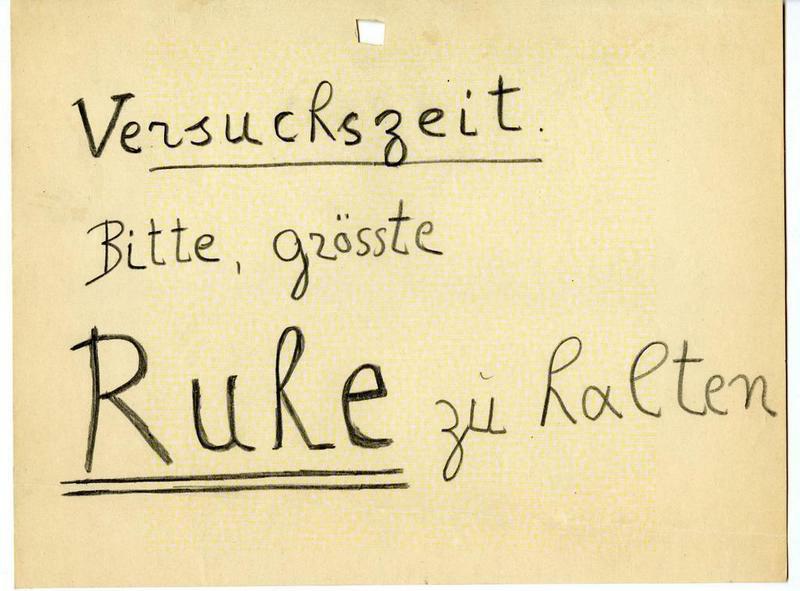 Versuchszeit.
Bitte, grösste
Ruhe zu halten